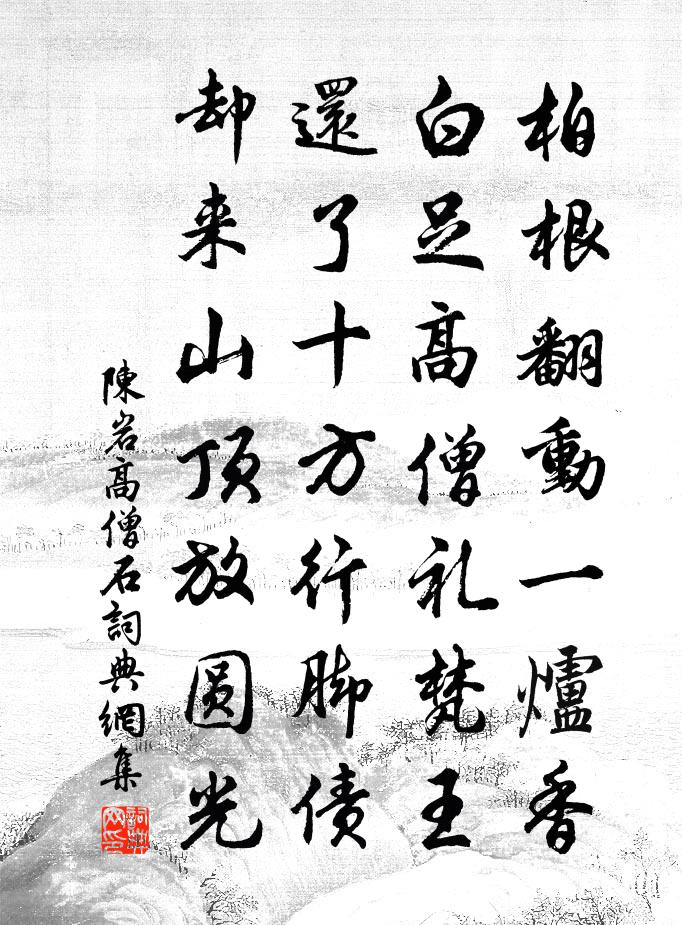 柏根翻動一爐香
白足高僧礼梵王
還了十方行脚债
却来山頂放圓光
陳岩高僧石詞典網集